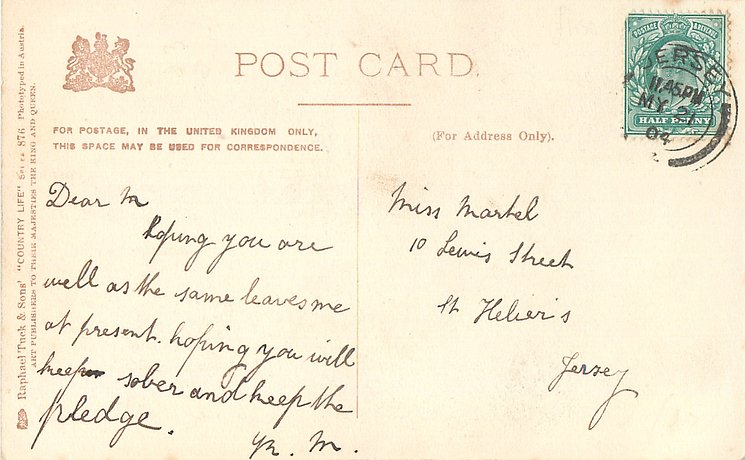 POST CARD.
FOR POSTAGE, IN THE UNITED KINGDOM ONLY,
THIS SPACE MAY BE USED FOR CORRESPONDENCE.
(For Address Only).
Raphael Tuck & Sons' "COUNTRY LIFE" Series 876 Phototyped in Austria.
ART PUBLISHERS TO THEIR MAJESTIES THE KING AND QUEEN.
POSTAGE REVENUE
HALF PENNY
JERSEY
11.45 PM
MY
04
Dear M
hoping you are
well as the same leaves me
at present. hoping you will
keep sober and keep the
pledge.
M.
Miss Martel
10 Lewis Street
St Helier's
Jersey